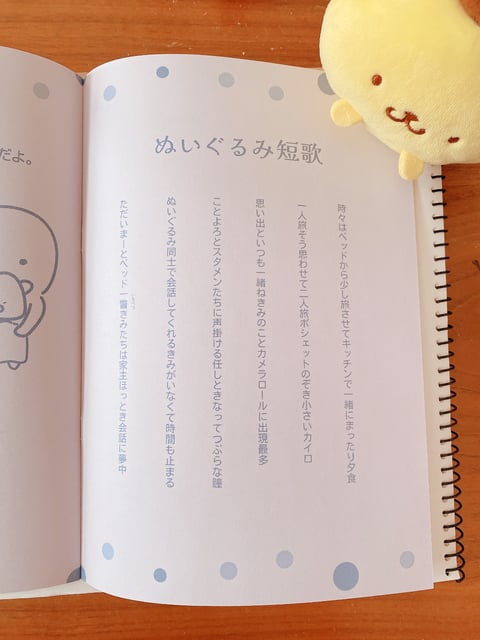 ぬいぐるみ短歌
時々はベッドから少し旅させてキッチンで一緒にまったり夕食
一人旅そう思わせて二人旅ポシェットのぞき小さいカイロ
思い出といつも一緒ねきみのことカメラロールに出現最多
ことよろとスタメンたちに声掛ける任しときなってつぶらな瞳
ぬいぐるみ同士で会話してくれるきみがいなくて時間も止まる
ただいまーとベッド一瞥きみたちは家主ほっとき会話に夢中
だよ。